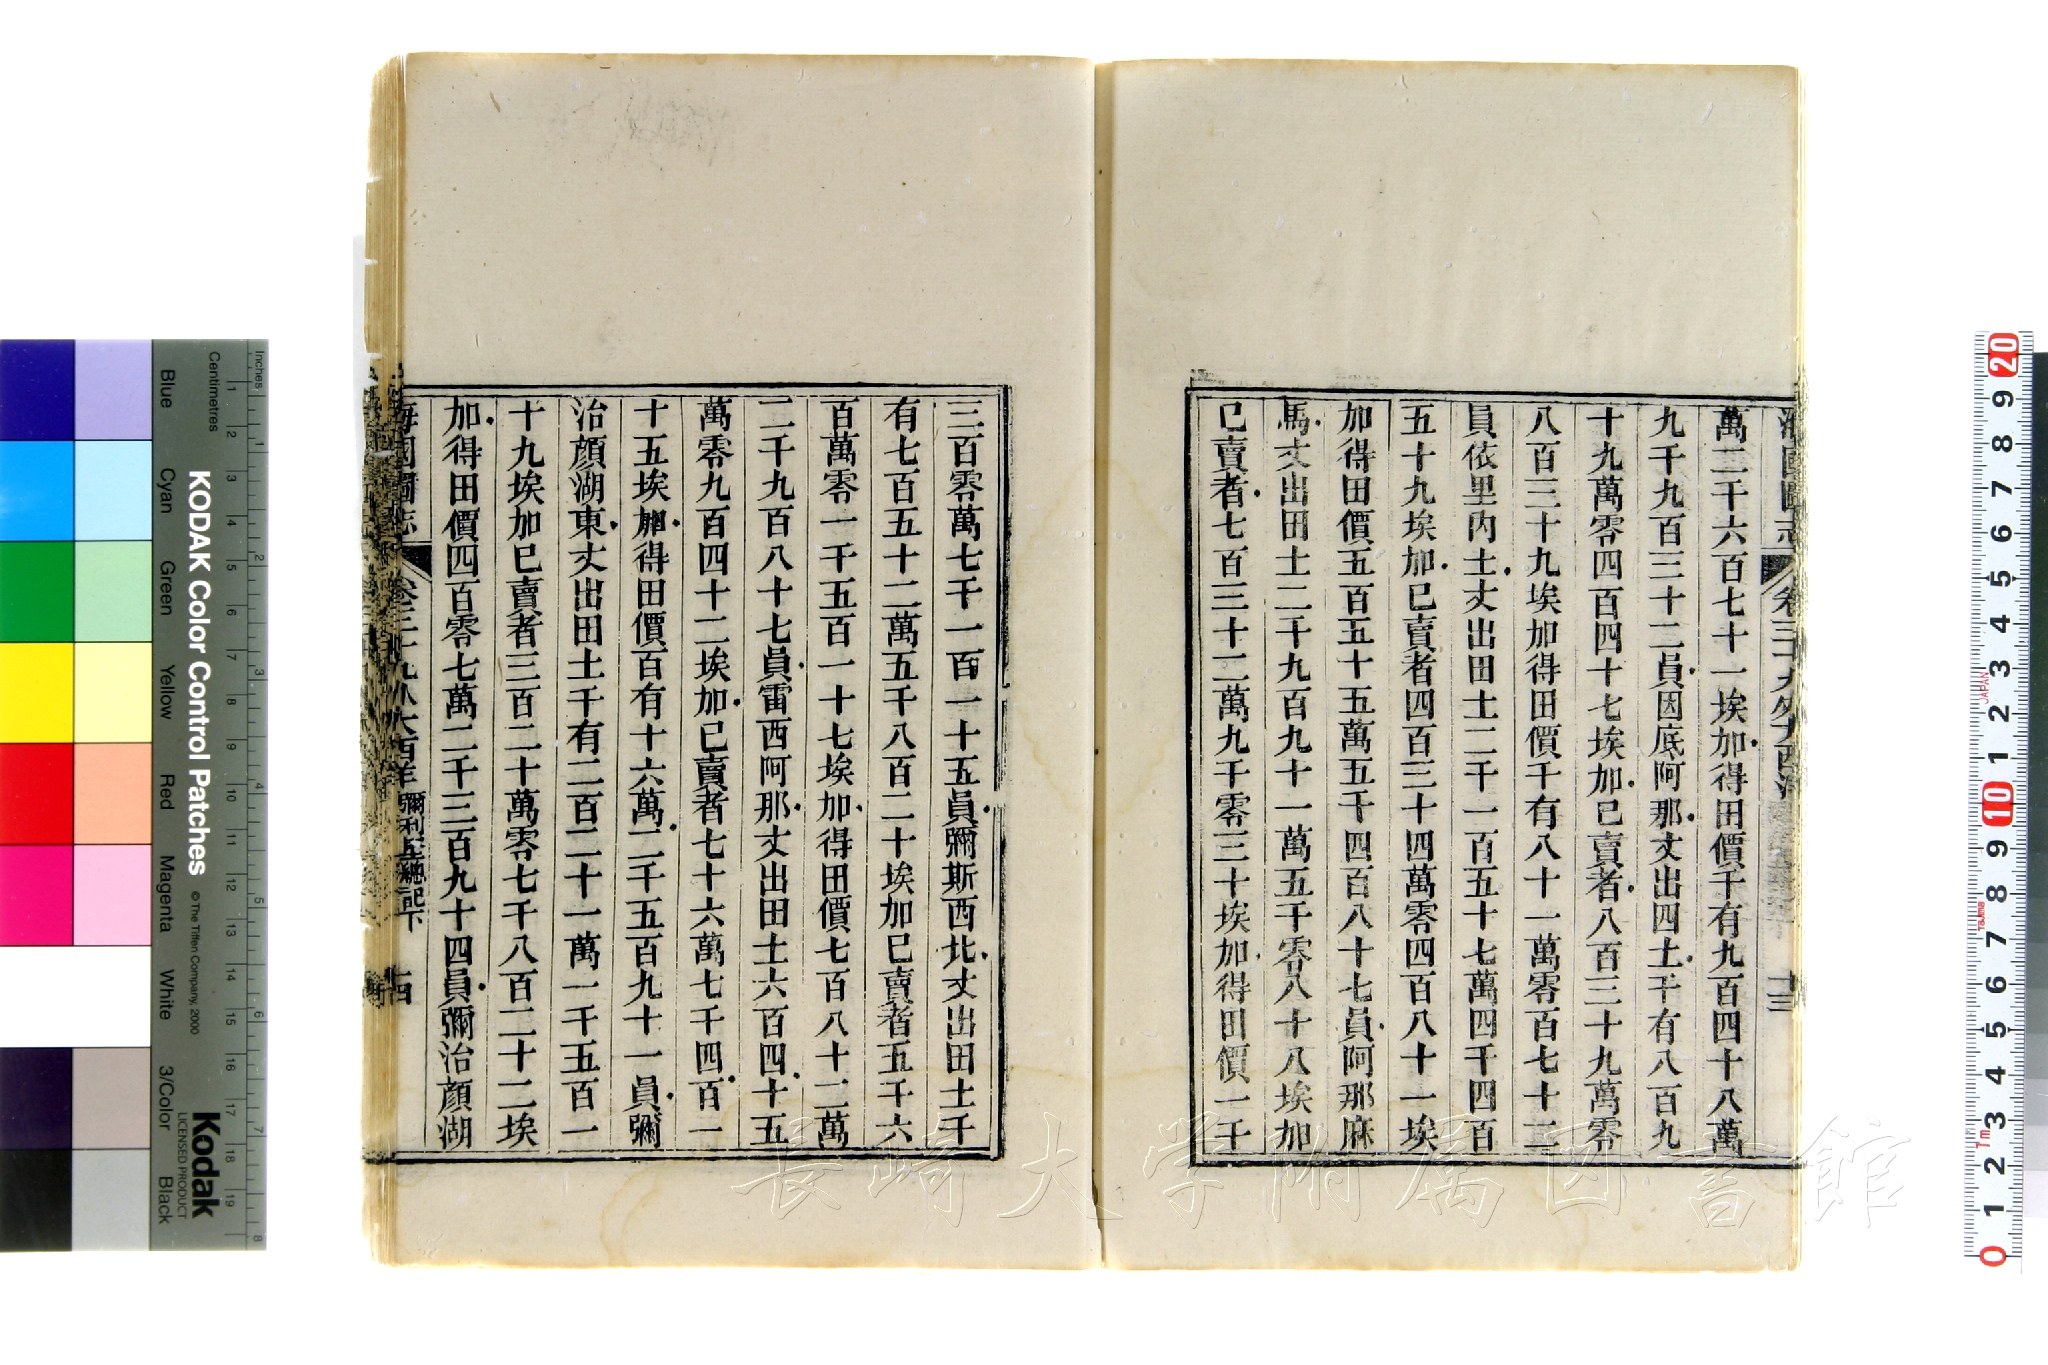 萬二千六百七十一埃加得田價千有九百四十八萬
九千九百三十二員因底阿那丈出四土千有八百九
十九萬零四百四十七埃加已賣者八百三十九萬零
八百三十九埃加得田價千有八十一萬零百七十二
員依里內土丈出田土二千一百五十七萬四千四百
五十九埃加已賣者四百三十四萬零四百八十一埃
加得田價五百五十五萬五千四百八十七員阿那麻
馬丈出田土二千九百九十一萬五千零八十八埃加
已賣者七百三十二萬九千零三十埃加得田價一千
三百零萬七千一百一十五員彌斯西北丈出田土千
有七百五十二萬五千八百二十埃加已賣者五千六
百萬零一千五百一十七埃加得田價七百八十二萬
二千九百八十七員雷西阿那丈出田土六百四十五
萬零九百四十二埃加已賣者七十六萬七千四百一
十五埃加得田價百有十六萬二千五百九十一員彌
治顏湖東丈出田土千有二百二十一萬一千五百一
十九埃加已賣者三百二十萬零七千八百二十二埃
加得田價四百零七萬二千三百九十四員彌治顏湖
海國圖志 卷三十九 外大西洋 彌利堅總記下 十四
KODAK Color Control Patches
© The Tiffen Company, 2000
Kodak
LICENSED PRODUCT
Inches
Centimetres
Blue
Cyan
Green
Yellow
Red
Magenta
White
3/Color
Black
長崎大学附属図書館